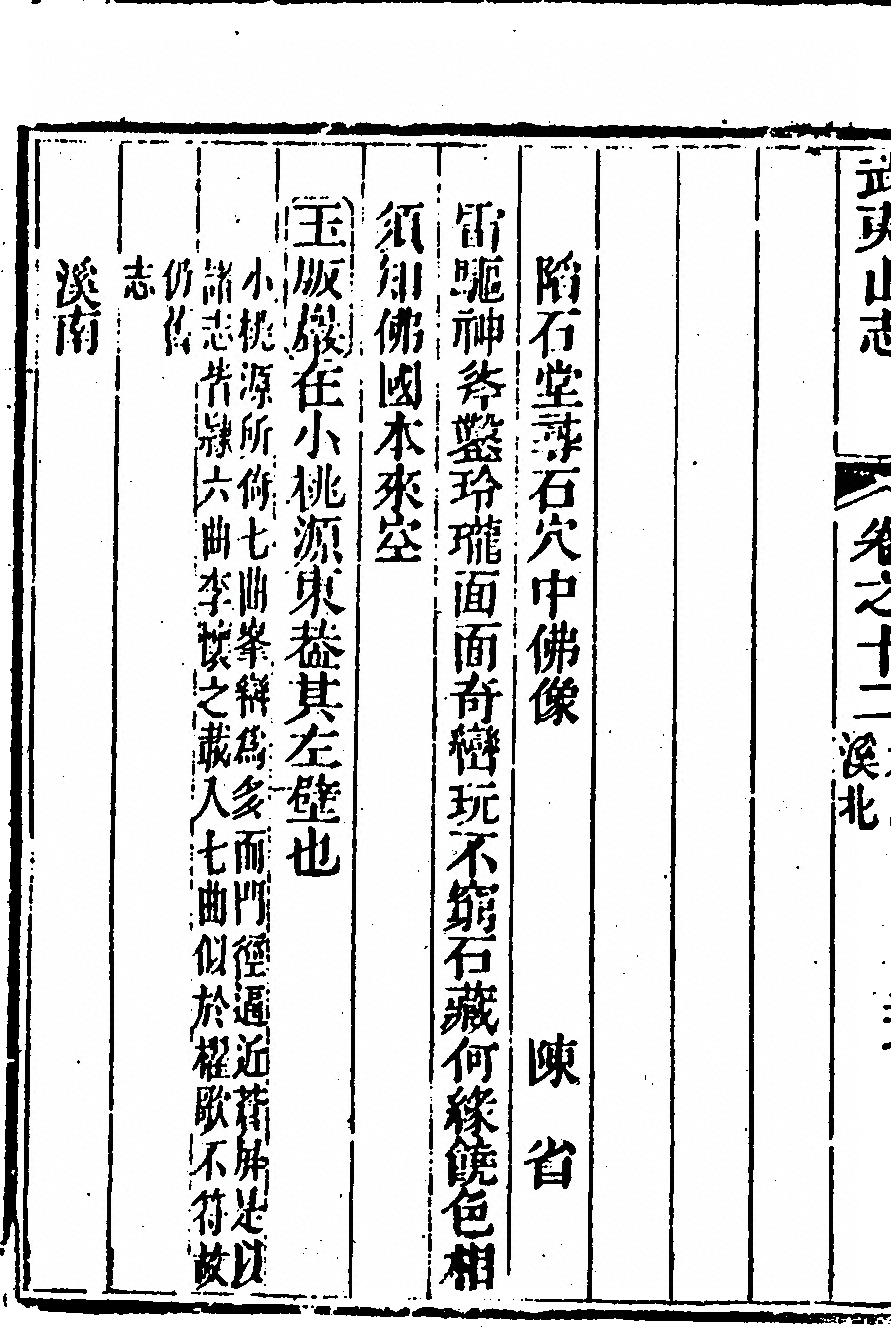 武夷山志
卷之十二
溪北
陷石堂尋石穴中佛像 陳省
雷驅神斧鑿玲瓏面面奇巒玩不窮石藏何緣饒色相
須知佛國本來空
玉版巖在小桃源東葢其左壁也
小桃源所倚七曲峯巒爲多而門徑逼近蒼屏是以
諸志皆隸六曲李懷之載入七曲似於櫂歌不符故
仍舊
志
溪南